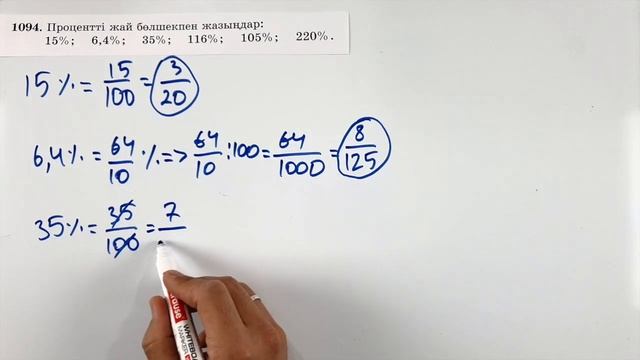 1094. Процентті жай бөлшекпен жазыңдар:
15%; 6,4%; 35%; 116%; 105%; 220%.
15% = 15/100 = 3/20
6,4% = 64/10 % => 64/10 : 100 = 64/1000 = 8/125
35% = 35/100 = 7/
WHITEBOARD
MARKER